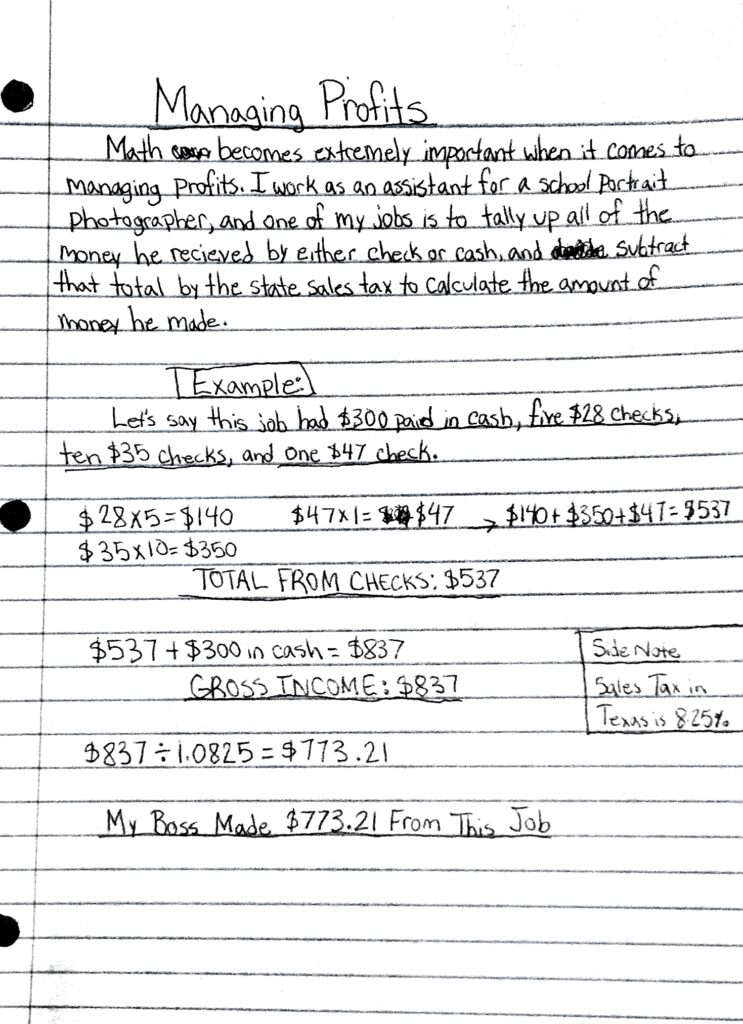 Managing Profits
Math becomes extremely important when it comes to
managing profits. I work as an assistant for a school portrait
photographer, and one of my jobs is to tally up all of the
money he recieved by either check or cash, and subtract
that total by the state sales tax to calculate the amount of
money he made.
Example:
Let's say this job had $300 paid in cash, five $28 checks,
ten $35 checks, and one $47 check.
$28x5=$140 $47x1= $47 → $140+$350+$47=$537
$35x10=$350
TOTAL FROM CHECKS: $537
$537 + $300 in cash = $837
GROSS INCOME: $837
Side Note
Sales Tax in
Texas is 8.25%
$837 ÷ 1.0825 = $773.21
My Boss Made $773.21 From This Job